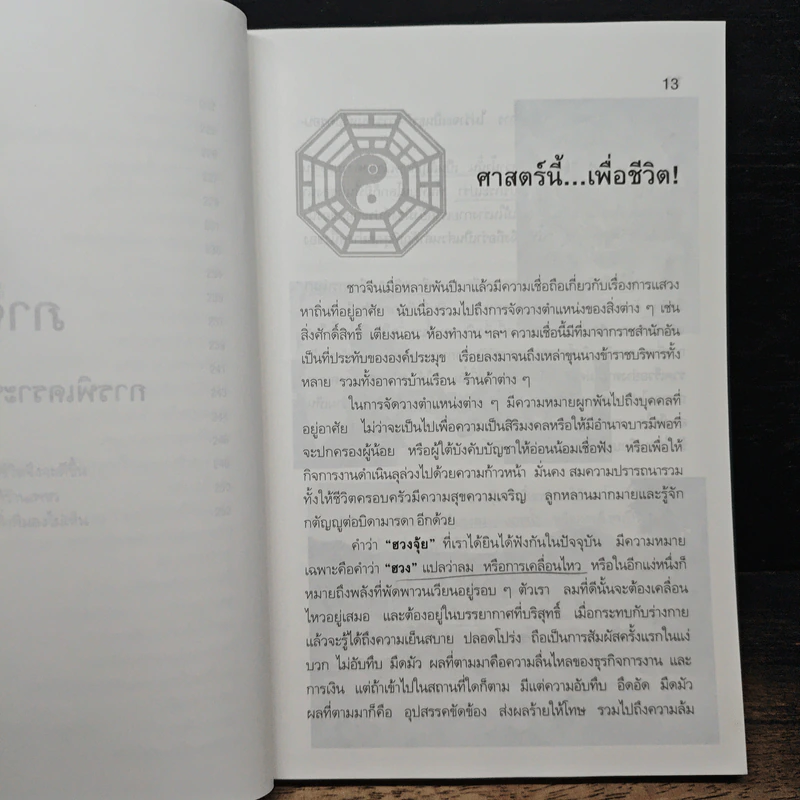 13
ศาสตร์นี้...เพื่อชีวิต!
ชาวจีนเมื่อหลายพันปีมาแล้วมีความเชื่อถือเกี่ยวกับเรื่องการแสวง
หาถิ่นที่อยู่อาศัย นับเนื่องรวมไปถึงการจัดวางตำแหน่งของสิ่งต่าง ๆ เช่น
สิ่งศักดิ์สิทธิ์ เตียงนอน ห้องทำงาน ฯลฯ ความเชื่อนี้มีที่มาจากราชสำนักอัน
เป็นที่ประทับขององค์ประมุข เรื่อยลงมาจนถึงเหล่าขุนนางข้าราชบริพารทั้ง
หลาย รวมทั้งอาคารบ้านเรือน ร้านค้าต่าง ๆ
ในการจัดวางตำแหน่งต่าง ๆ มีความหมายผูกพันไปถึงบุคคลที่
อยู่อาศัย ไม่ว่าจะเป็นไปเพื่อความเป็นสิริมงคลหรือให้มีอำนาจบารมีพอที่
จะปกครองผู้น้อย หรือผู้ใต้บังคับบัญชาให้อ่อนน้อมเชื่อฟัง หรือเพื่อให้
กิจการงานดำเนินลุล่วงไปด้วยความก้าวหน้า มั่นคง สมความปรารถนารวม
ทั้งให้ชีวิตครอบครัวมีความสุขความเจริญ ลูกหลานมากมายและรู้จัก
กตัญญูต่อบิดามารดา อีกด้วย
คำว่า "ฮวงจุ้ย" ที่เราได้ยินได้ฟังกันในปัจจุบัน มีความหมาย
เฉพาะคือคำว่า "ฮวง" แปลว่าลม หรือการเคลื่อนไหว หรือในอีกแง่หนึ่งก็
หมายถึงพลังที่พัดพาวนเวียนอยู่รอบ ๆ ตัวเรา ลมที่ดีนั้นจะต้องเคลื่อน
ไหวอยู่เสมอ และต้องอยู่ในบรรยากาศที่บริสุทธิ์ เมื่อกระทบกับร่างกาย
แล้วจะรู้ได้ถึงความเย็นสบาย ปลอดโปร่ง ถือเป็นการสัมผัสครั้งแรกในแง่
บวก ไม่อับทึบ มืดมัว ผลที่ตามมาคือความลื่นไหลของธุรกิจการงาน และ
การเงิน แต่ถ้าเข้าไปในสถานที่ใดก็ตาม มีแต่ความอับทึบ อึดอัด มืดมัว
ผลที่ตามมาก็คือ อุปสรรคขัดข้อง ส่งผลร้ายให้โทษ รวมไปถึงความล้ม